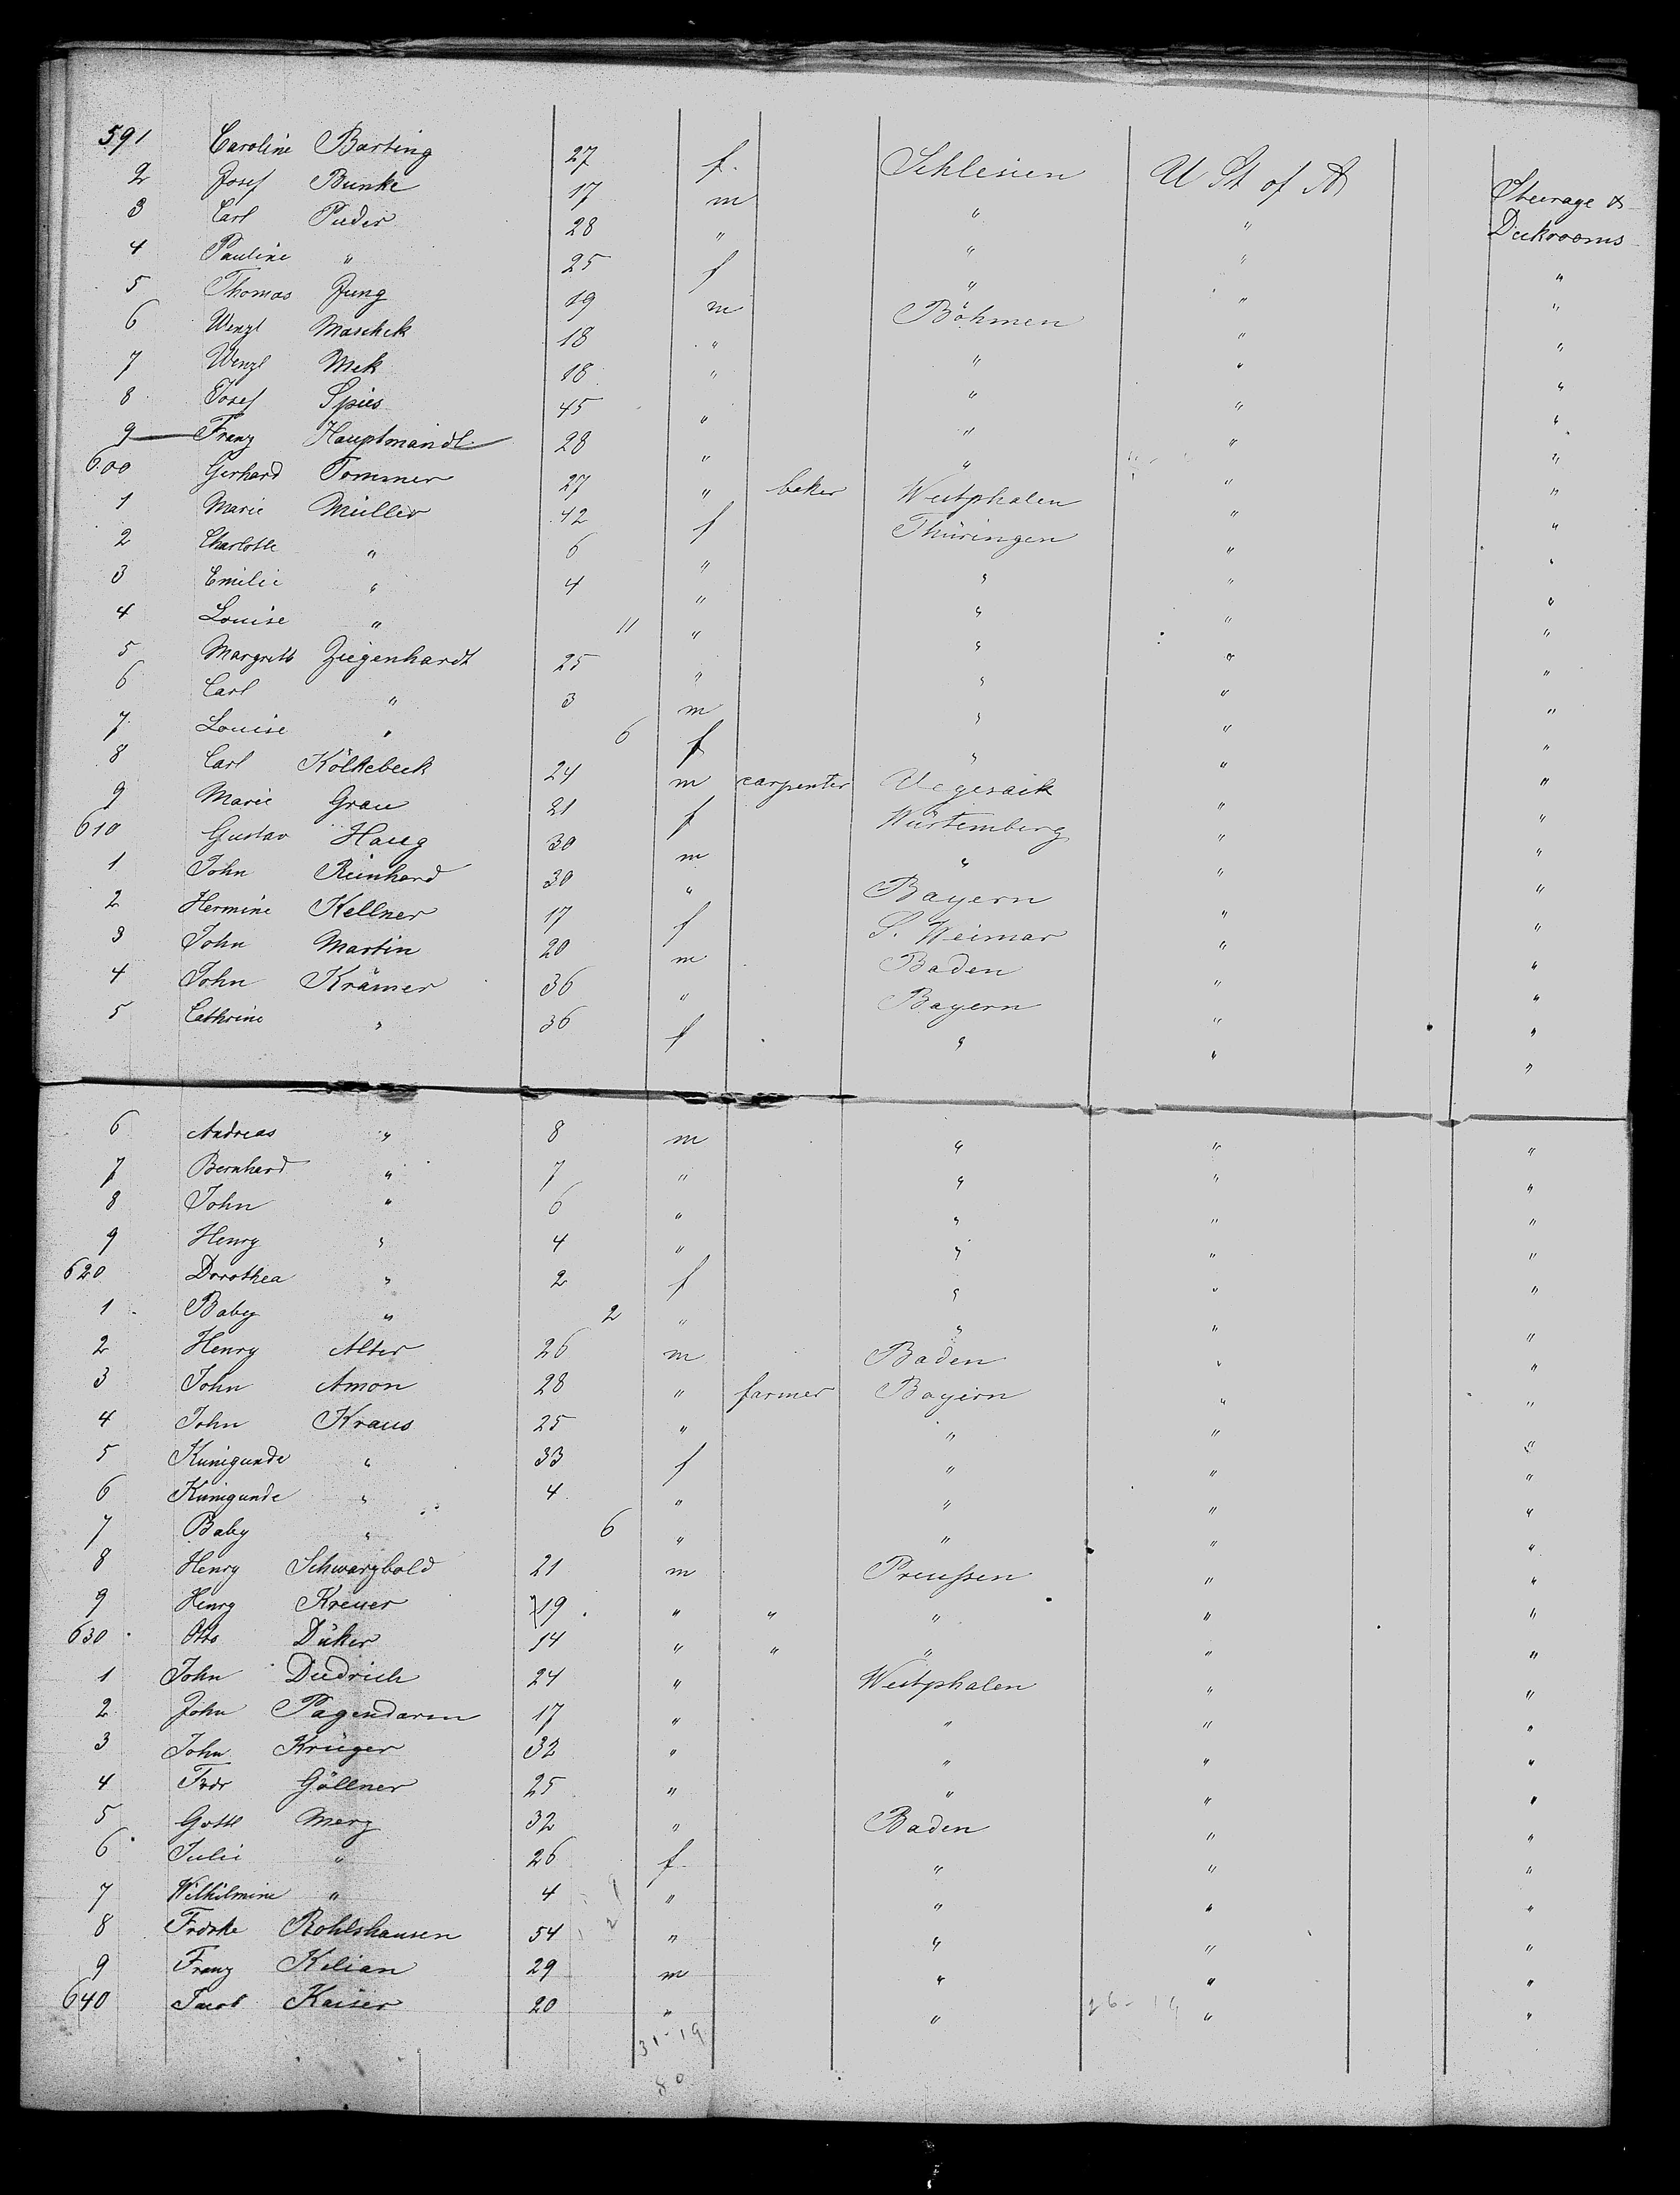 591 Caroline Barting 27 f. Schlesien U St of A Steerage &
2 Josef Bunke 17 m " " Deckrooms
3 Carl Puder 28 " " " "
4 Pauline " 25 f " " "
5 Thomas Jung 19 m Böhmen " "
6 Wenzl Maschek 18 " " " "
7 Wenzl Mek 18 " " " "
8 Josef Spies 45 " " " "
9 Franz Hauptmandl 28 " " " "
600 Gerhard Tommer 27 " baker Westphalen " "
1 Marie Müller 42 f Thüringen " "
2 Charlotte " 6 " " " "
3 Emilie " 4 " " " "
4 Louise " 11 " " " "
5 Margreth Ziegenhardt 25 " " " "
6 Carl " 3 m " " "
7 Louise " 6 f " " "
8 Carl Kölkebeck 24 m carpenter Vegesack " "
9 Marie Grau 21 f Würtemberg " "
610 Gustav Haug 30 m " " "
1 John Reinhard 30 " Bayern " "
2 Hermine Kellner 17 f S. Weimar " "
3 John Martin 20 m Baden " "
4 John Krämer 36 " Bayern " "
5 Cathrine " 36 f " " "
6 Andreas " 8 m " " "
7 Bernhard " 7 " " " "
8 John " 6 " " " "
9 Henry " 4 " " " "
620 Dorothea " 2 f " " "
1 Baby " 2 " " " "
2 Henry Alter 26 m Baden " "
3 John Amon 28 " farmer Bayern " "
4 John Kraus 25 " " " "
5 Kunigunde " 33 f " " "
6 Kunigunde " 4 " " " "
7 Baby " 6 " " " "
8 Henry Schwarzbold 21 m Preußen " "
9 Henry Kreuer 19 " " " " "
630 Otto Düker 14 " " " " "
1 John Diedrich 24 " Westphalen " "
2 John Pagendarm 17 " " " "
3 John Krüger 32 " " " "
4 Fredr Göllner 25 " " " "
5 Gottl Merz 32 " Baden " "
6 Julie " 26 f " " "
7 Wilhelmine " 4 " " " "
8 Fredrke Rohlshausen 54 " " " "
9 Franz Kilian 29 m " " "
640 Jacob Kaiser 20 " " 26-19 " "
31-19
80